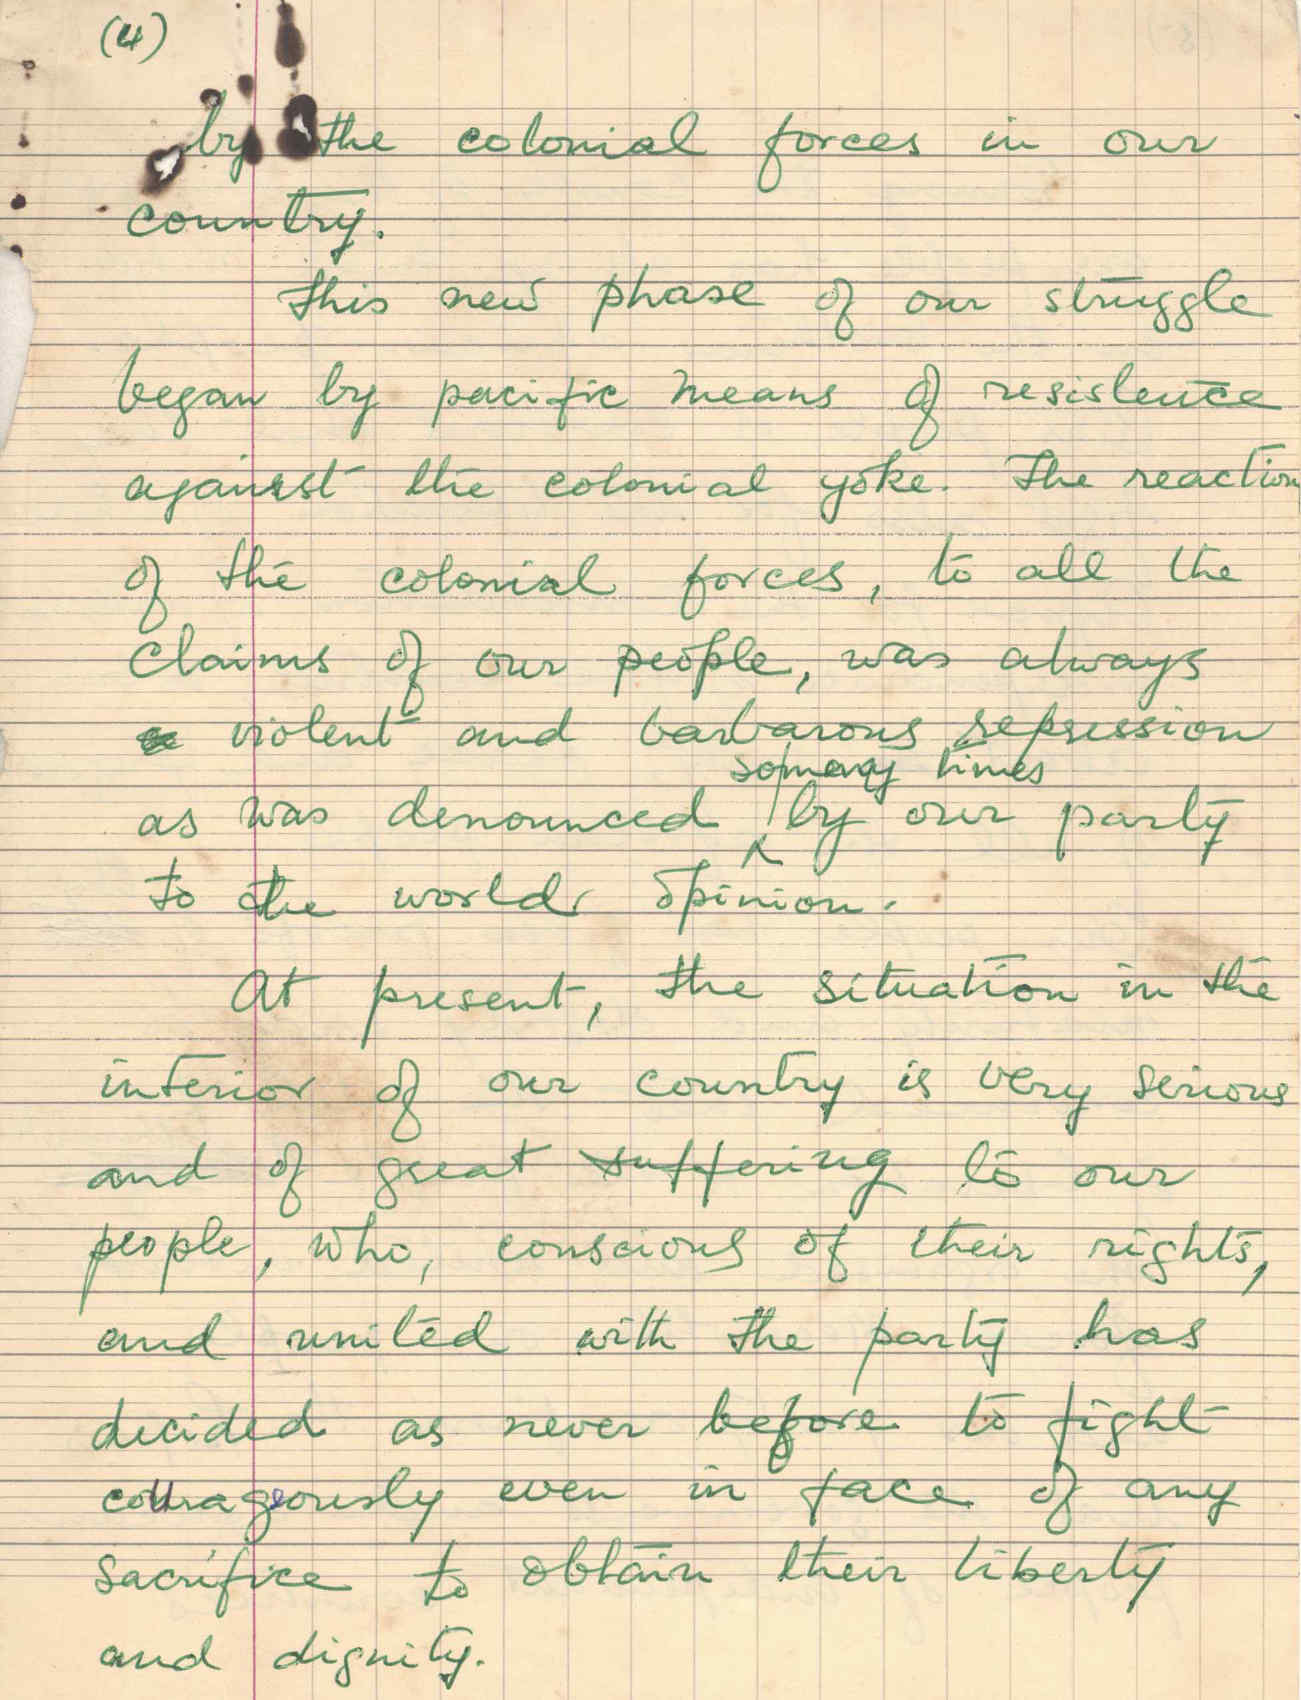 (4)
by the colonial forces in our
country.
This new phase of our struggle
began by pacific means of resistence
against the colonial yoke. The reaction
of the colonial forces, to all the
claims of our people, was always
violent and barbarous repression
so many times
as was denounced by our party
to the world opinion.
At present, the situation in the
interior of our country is very serious
and of great suffering to our
people, who, conscious of their rights,
and united with the party has
decided as never before to fight
courageously even in face of any
sacrifice to obtain their liberty
and dignity.